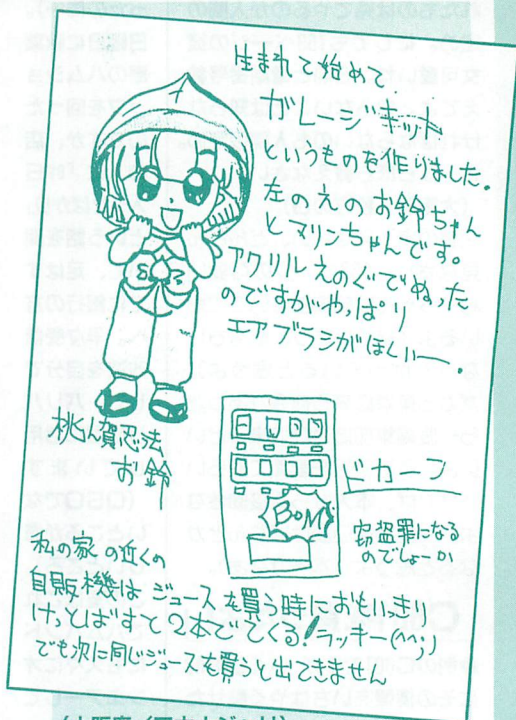 生まれて始めて、
ガレージキット
というものを作りました。
左のえのお鈴ちゃん
とマリンちゃんです。
アクリルえのぐでぬった
のですがやっぱり
エアブラシがほしいー。
お鈴
BOM
ドカーン
窃盗罪になる
のでしょーか
私の家の近くの
自販機はジュースを買う時におもいっきり
けっとばすと2本でてくる!ラッキー(^^;)
でも次に同じジュースを買うと出てきません